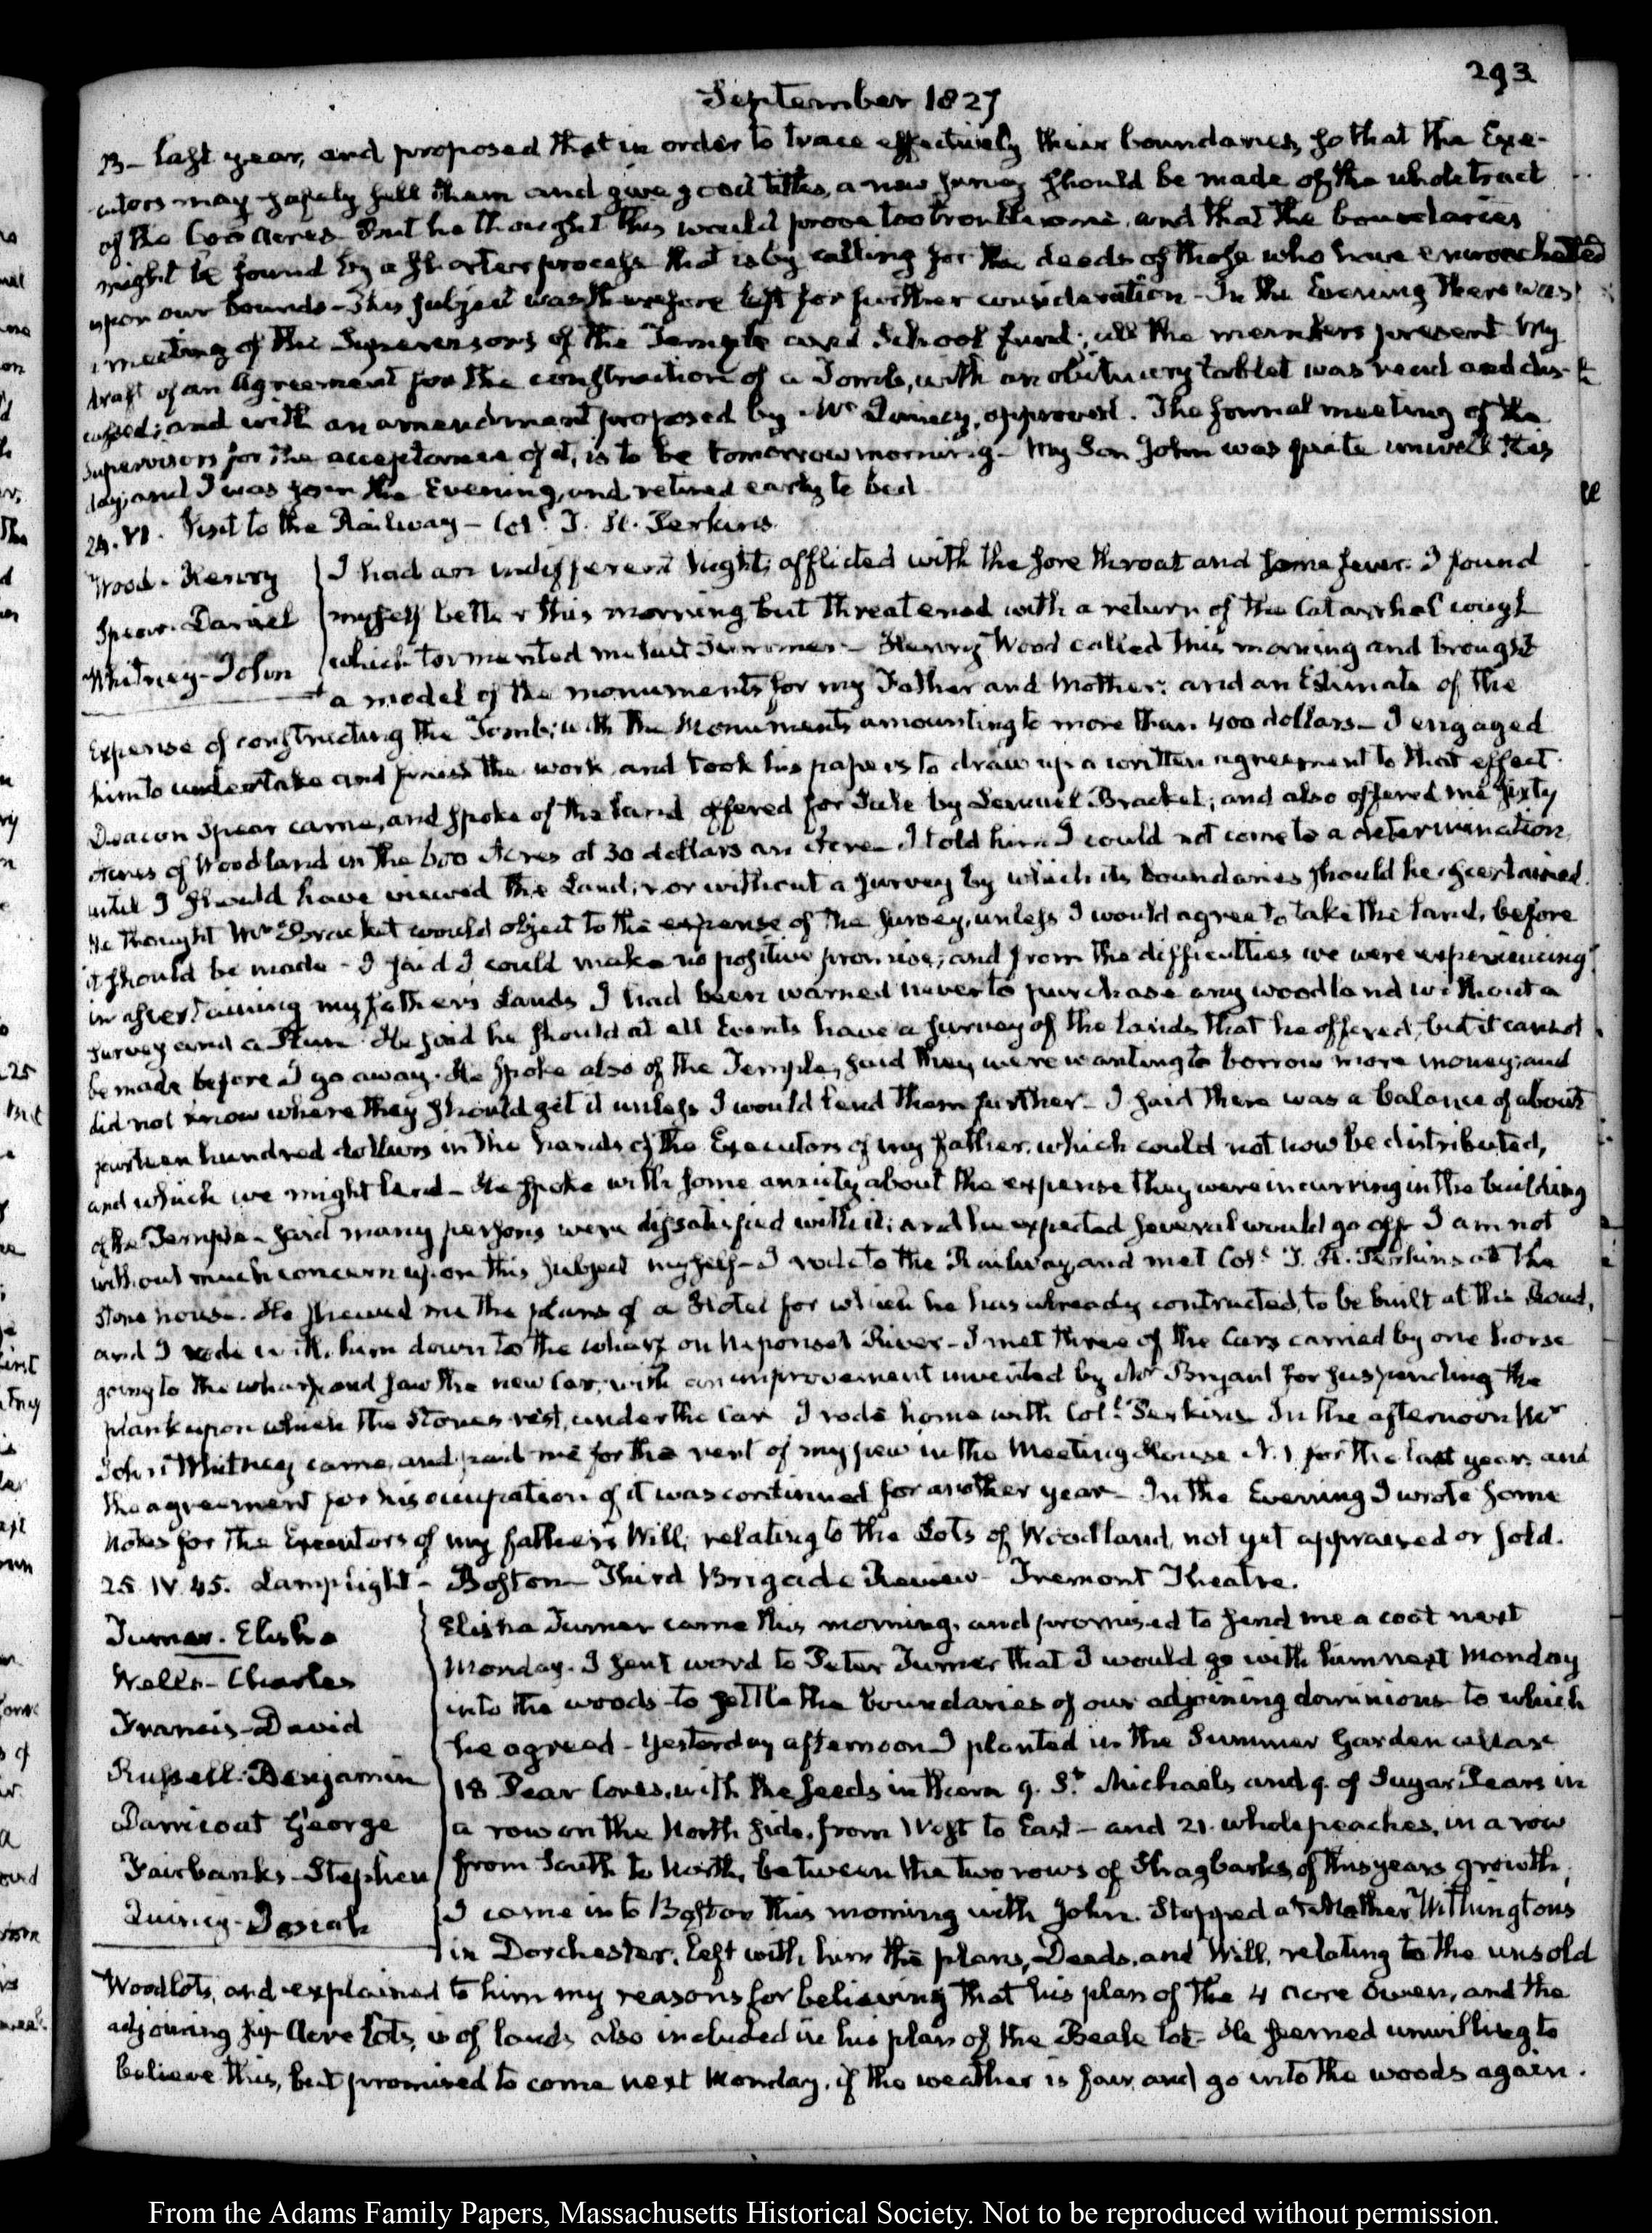 293
September 1827
23 – last year, and proposed that in order to trace effectively their boundaries, so that the Exe-
cutors may safely sell them and give good titles, a new survey should be made of the whole tract
of the 600 acres. But he thought this would prove too troublesome, and that the boundaries
might be found by a shorter process that is by calling for the deeds of those who have encroached
upon our bounds – This subject was therefore left for further consideration – In the Evening there was
a meeting of the Supervisors of the Temple and School fund; all the members present My
draft of an Agreement for the construction of a Tomb, with an obituary tablet was read and dis-
cussed; and with an amendment proposed by Mr Quincy, approved. The formal meeting of the
Supervisors for the acceptance of it, is to be tomorrow morning – My Son John was quite unwell this
day; and I was so in the Evening, and retired early to bed
24. VI. Visit to the Railway – Coll. T. H. Perkins
Wood – Henry
Spear – Daniel
Whitney – John
I had an indifferent Night; afflicted with the sore throat and some fever. I found
myself better this morning but threatened with a return of the Catarrhal cough
which tormented me last Summer – Henry Wood called this morning and brought
a model of the monuments for my Father and Mother; and an Estimate of the
Expense of constructing the Tomb; with the Monuments amounting to more than 400 dollars – I engaged
him to undertake and finish the work, and took his papers to draw up a written agreement to that effect.
Deacon Spear came, and spoke of the land offered for Sale by Lemuel Bracket; and also offered me sixty
Acres of Woodland in the 600 Acres at 30 dollars an Acre – I told him I could not come to a determination
until I should have viewed the Land; nor without a survey by which its boundaries should be ascertained.
He thought Mr Bracket would object to the expense of the survey, unless I would agree to take the land, before
it should be made – I said I could make no positive promise; and from the difficulties we were experiencing
in ascertaining my father's Lands I had been warned never to purchase any woodland without a
survey and a Plan. He said he should at all Events have a survey of the lands that he offered, but it cannot
be made before I go away. He spoke also of the Temple, said they were wanting to borrow more money; and
did not know where they should get it unless I would lend them further – I said there was a balance of about
fourteen hundred dollars in the hands of the Executors of my father, which could not now be distributed,
and which we might lend – He spoke with some anxiety about the expense they were incurring in the building
of the Temple – said many persons were dissatisfied with it; and he expected several would go off. I am not
without much concern upon this subject myself – I rode to the Railway, and met Coll. T. H. Perkins at the
Stone house. He shewed me the plans of a Hotel for which he has already contracted, to be built at the Road,
and I rode with him down to the wharf on Neponset River – I met three of the Cars carried by one horse
going to the wharf, and saw the new Car, with an improvement invented by Mr Bryant for suspending the
plank upon which the Stones rest, under the Car. I rode home with Coll. Perkins. In the afternoon Mr
John Whitney came, and paid me for the rent of my pew in the Meeting House N. 1 for the last year, and
the agreement for his occupation of it was continued for another year – In the Evening I wrote some
Notes for the Executors of my father's Will, relating to the Lots of Woodland, not yet appraised or sold.
25. IV. 45. Lamplight – Boston – Third Brigade Review – Tremont Theatre.
Turner – Elisha
Wells – Charles
Francis – David
Russell – Benjamin
Darricoat George
Fairbanks – Stephen
Quincy – Josiah
Elisha Turner came this morning, and promised to send me a coat next
Monday. I sent word to Peter Turner that I would go with him next Monday
into the woods to settle the boundaries of our adjoining dominions to which
he agreed – Yesterday afternoon I planted in the Summer Garden
18 Pear Cores, with the seeds in them 9. St. Michaels and 9. of Sugar Pears in
a row on the North side, from West to East – and 21. whole peaches, in a row
from South to North, between the two rows of Shagbarks of this years growth.
I came into Boston this morning with John. Stopped at Mather Withingtons
in Dorchester, left with him the plans, Deeds, and Will, relating to the unsold
Woodlots, and explained to him my reasons for believing that his plan of the 4 acre Owen, and the
adjoining six Acre lots, is of lands also included in his plan of the Beale lot – He seemed unwilling to
believe this, but promised to come next Monday, if the weather is fair, and go into the woods again.
From the Adams Family Papers, Massachusetts Historical Society. Not to be reproduced without permission.